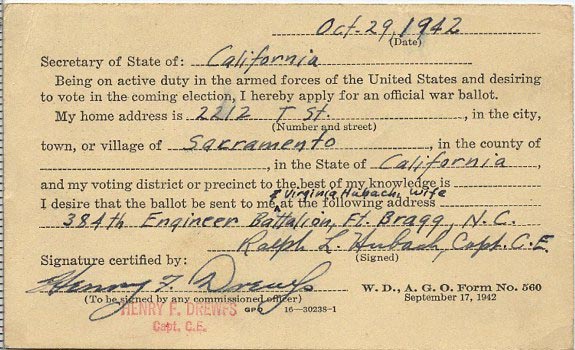 Oct. 29, 1942
(Date)
Secretary of State of: California
Being on active duty in the armed forces of the United States and desiring
to vote in the coming election, I hereby apply for an official war ballot.
My home address is 2212 T St., in the city,
(Number and street)
town, or village of Sacramento, in the county of
, in the State of California
and my voting district or precinct to the best of my knowledge is
& Virginia Hubach, wife
I desire that the ballot be sent to me at the following address
384th Engineer Battalion, Ft. Bragg, N.C.
Ralph L. Hubach, Capt. C.E.
Signature certified by: (Signed)
Henry F. Drewfs
(To be signed by any commissioned officer)
W. D., A. G. O. Form No. 560
September 17, 1942
HENRY F. DREWFS
Capt. C.E.
GPO 16—30238-1